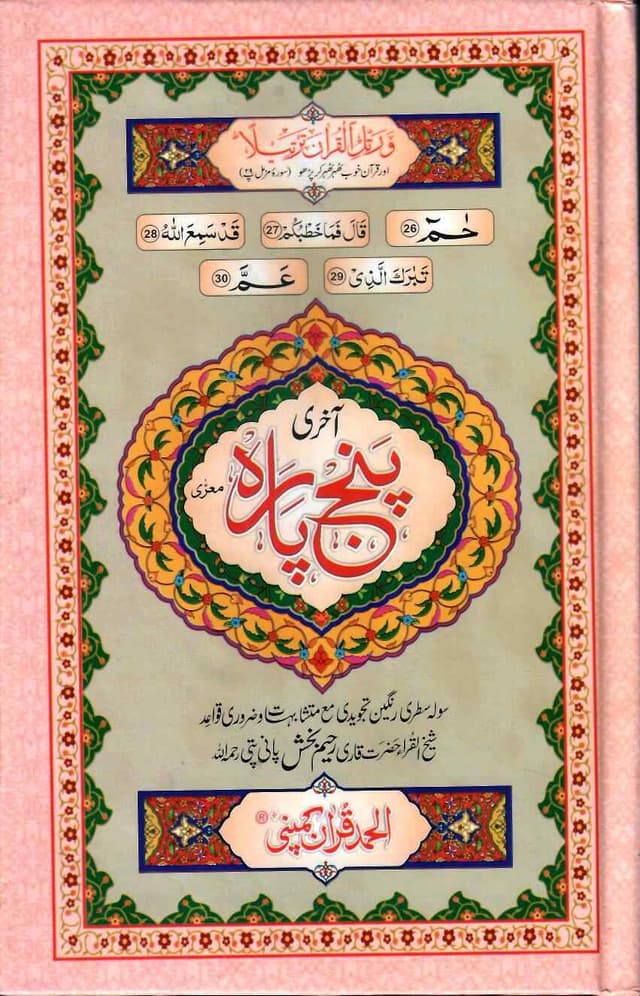 وَرَتِّلِ الْقُرْاٰنَ تَرْتِیْلًاؕ
اور قرآن خوب ٹھہر ٹھہر کر پڑھو (سورۂ مزمل پ۲۹)
حٰمٓ 26 قَالَ فَمَا خَطْبُکُمْ 27 قَدْ سَمِعَ اللّٰهُ 28
تَبٰرَكَ الَّذِیْ 29 عَـمَّ 30
آخری
پَنج پَارَہ
معرٰی
سولہ سطری رنگین تجویدی مع متشابہت و ضروری قواعد
شیخ القراء حضرت قاری رحیم بخش پانی پتی رحمہ اللہ
الحمد قرآن کمپنی ®